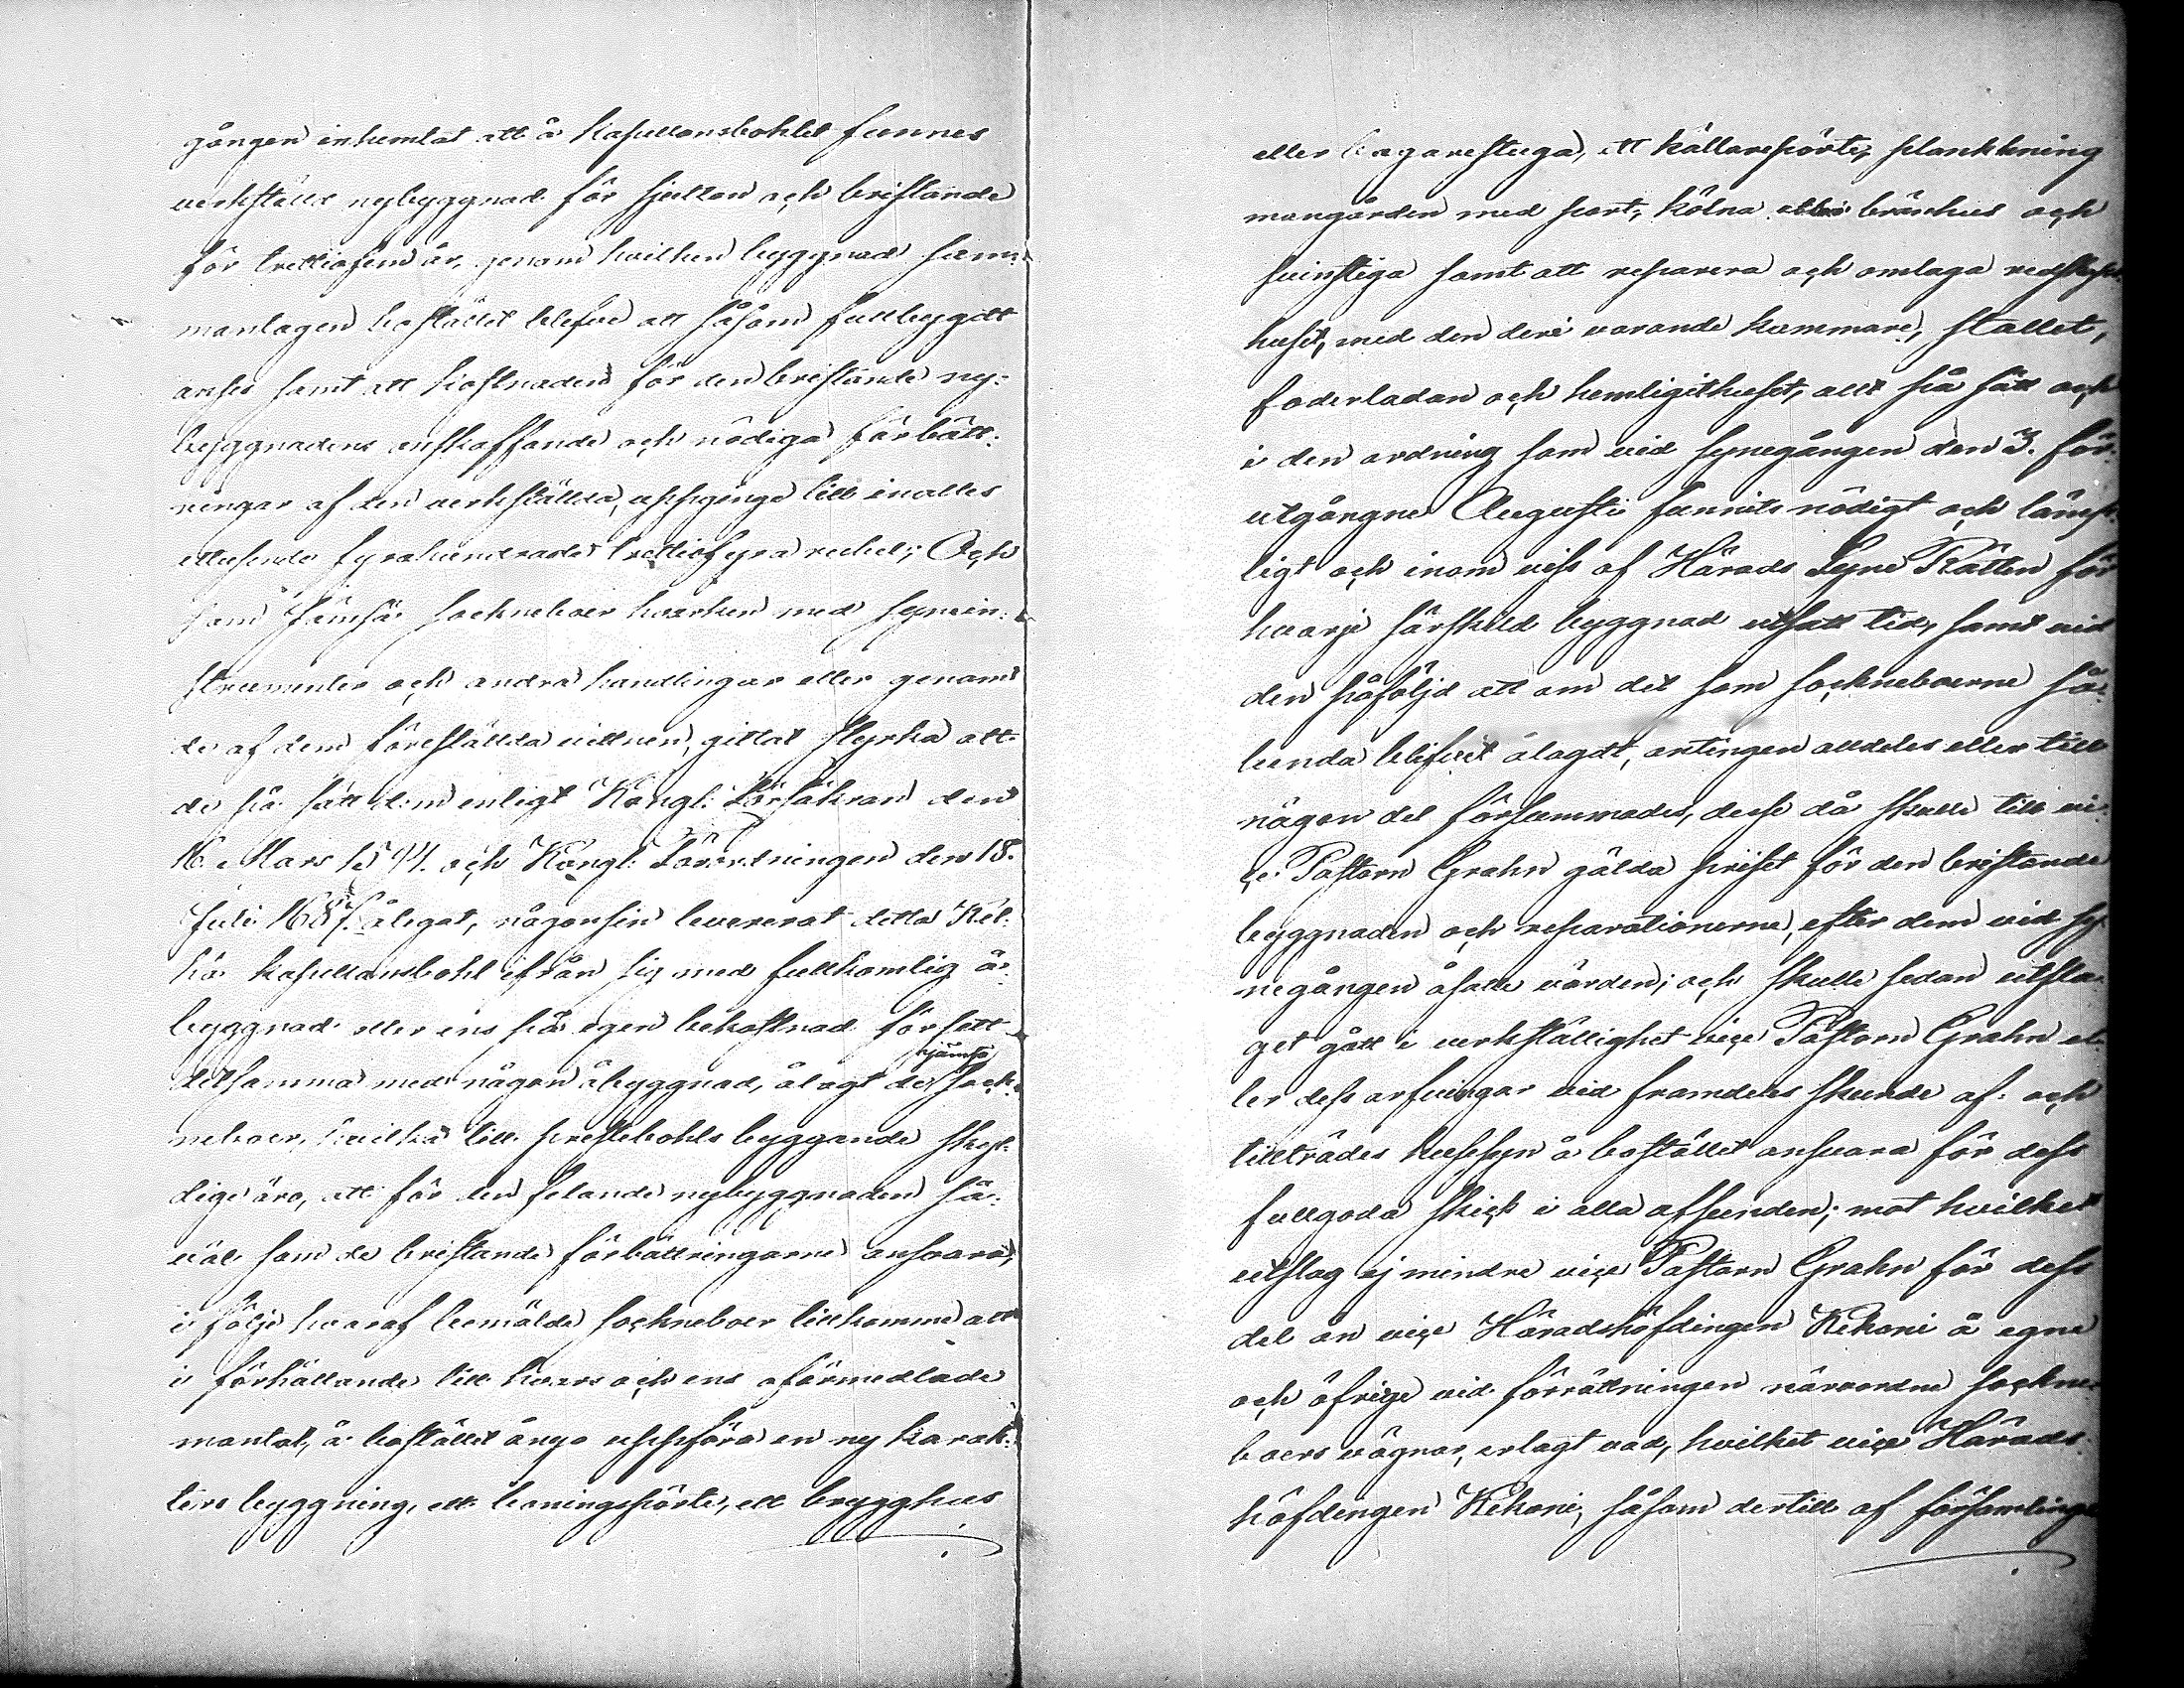 gången inhemtat att å kapellansbohlet funnes
verkställd nybyggnad för sjutton och bristande
för trettiofem år, genom hvilken byggnad sam¬
manlagen bostället blefve att såsom fullbygdt
anses samt att kostnaden för den bristande ny¬
byggnadens anskaffande och nödiga förbätt¬
ringar af den verkställda, uppginge till inalles
ettusende fyrahundrade trettiofyra rubel; Och
som Jämsä sockneboer hvarken med synein¬
strumenter och andra handlingar eller genom
de af dem föreställda vittnen, gittat styrka att
de på sätt dem enligt Kongl. Försäkran den
16 Mars 1544. och Kongl. Förordningen den 18.
Juli 1687. ålegat, någonsin levererat detta
kapellansbohl ifrån sig med fullkomlig å¬
byggnad eller ens på egen bekostnad försett
detsamma med någon åbyggnad, ålågt de Jämsä sock¬
neboer, hvilka till prestebohls byggande skyl¬
dige äro, att för den felande nybyggnaden så¬
väl som de bristande förbättringarne ansvara,
i följe hvaraf bemälde sockneboer tillkomme att
i förhållande till hvars och ens oförmedlade
mantal, å bostället ånyo uppföra en ny karak¬
ters byggning, ett boningspörte, ett brygghus
eller bagarestuga, ett källarepörte, plankning
mangården med port, kölna eller bråkhus och
svinstiga samt att reparera och omlaga redskaps¬
huset, med den deri varande kammare, stallet,
foderladan och hemligithuset, allt på sätt och
i den ordning som vid synegången den 3. för¬
utgångne Augusti funnits nödigt och lämp¬
ligt och inom viss af Härads Syne Rätten för
hvarje särskild byggnad utsatt tid, samt vid
den påföljd att om det som sockneboerne så¬
lunda blifvit ålagdt, antingen alldeles eller till
någon del försummades, desse då skulle till vi¬
ce Pastorn Grahn gälda priset för den bristande
byggnaden och reparationerne, efter dem vid sy¬
negången åsatte värden; och skulle sedan utsla¬
get gått i verkställighet vice Pastorn Grahn el¬
ler dess arfvingar vid framdeles skeende af- och
tillträdes husesyn å bostället ansvara för dess
fullgoda skick i alla afseenden; mot hvilket
utslag ej mindre vice Pastorn Grahn för dess
del än vice Häradshöfdingen Kekoni å egne
och öfrige vid förrättningen närvordne sockne
boers vägnar, erlagt vad, hvilket vice Härads
höfdingen Kekoni, såsom dertill af församlinge